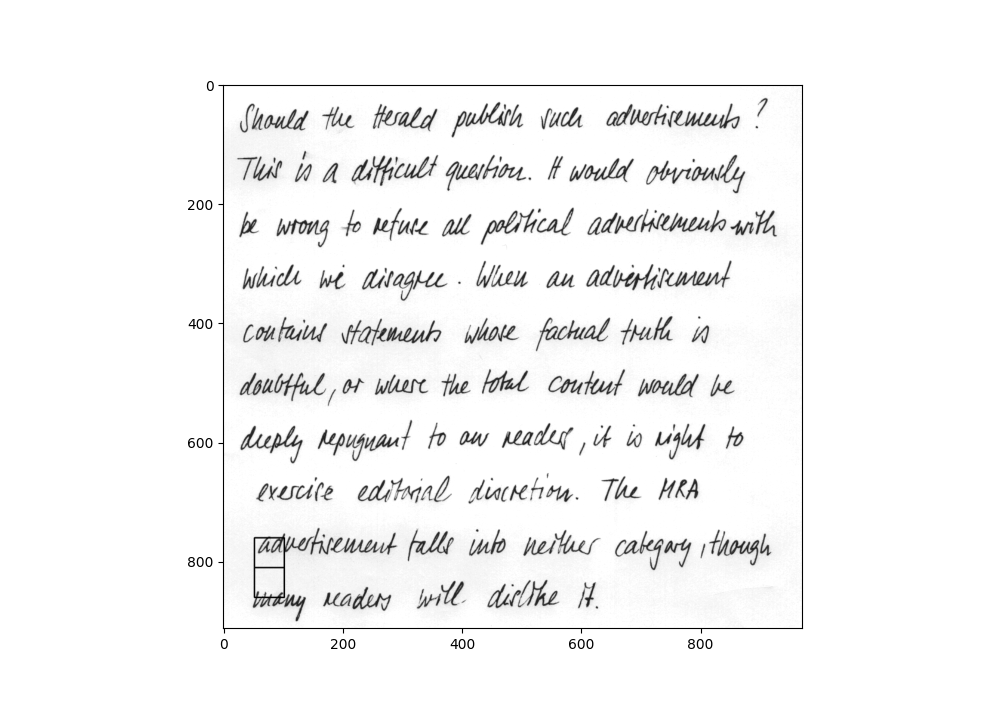 0
200
400
600
800
0 200 400 600 800
Should the Herald publish such advertisements ?
This is a difficult question. It would obviously
be wrong to refuse all political advertisements with
which we disagree. When an advertisement
contains statements whose factual truth is
doubtful, or where the total content would be
deeply repugnant to our readers, it is right to
exercise editorial discretion. The MRA
advertisement falls into neither category, though
many readers will dislike it.